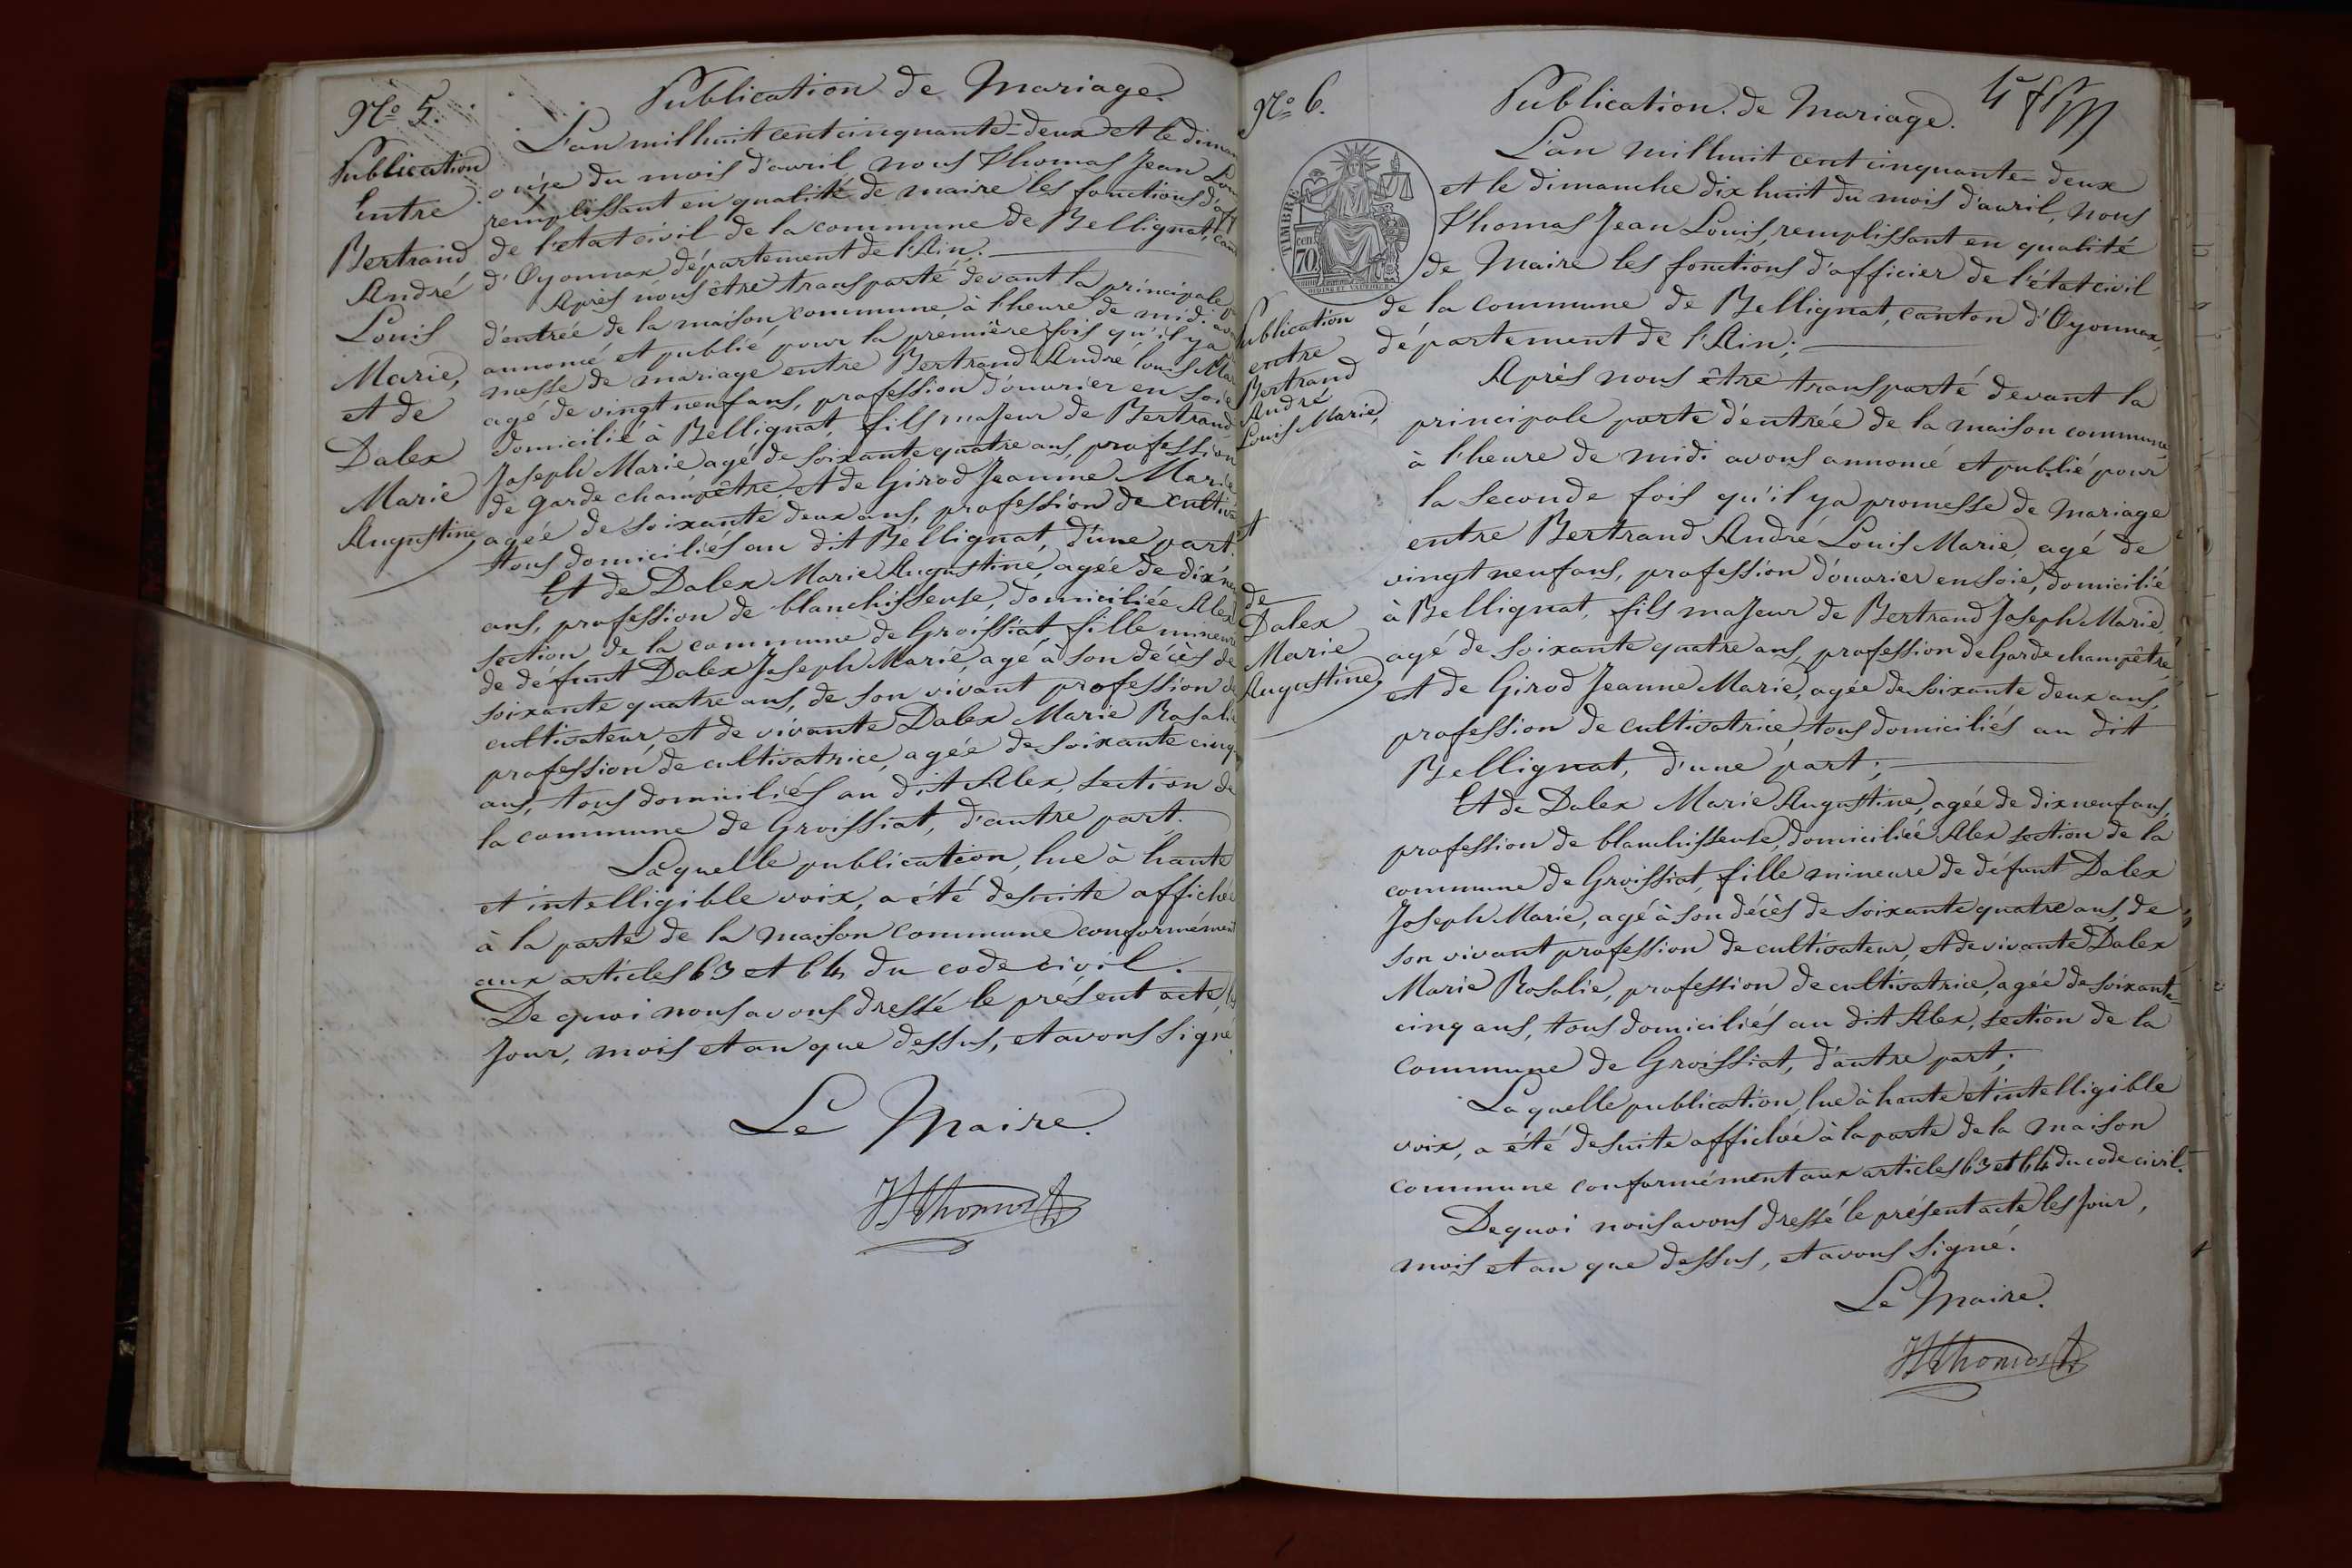 Nº 5.
Publication
Entre
Bertrand
André
Louis
Marie,
et de
Dalex
Marie
Augustine,
Publication de Mariage.
L'an mil huit cent cinquante-deux et le diman
onze du mois d'avril nous Thomas Jean Lou
remplissant en qualité de maire les fonctions d'off
de l'etat civil de la commune de Bellignat, cant
d'Oyonnax département de l'Ain;
Après nous être transporté devant la principale
d'entrée de la maison commune, à l'heure de midi av
annoncé et publié pour la première fois qu'il y a
messe de mariage entre Bertrand André Louis Mar
agé de vingt neuf ans, profession d'ouvrier en soie
domicilié à Bellignat, fils majeur de Bertrand
Joseph Marie agé de soixante quatre ans, profession
de garde champêtre, et de Girod Jeanne Marie,
agée de soixante deux ans, profession de cultiva
tous domiciliés au dit Bellignat, d'une part.
Et de Dalex Marie Augustine, agée de dix neu
ans, profession de blanchisseuse, domiciliée Alex
section de la commune de Groissiat, fille mineure
de defunt Dalex Joseph Marie, agé à son décès de
soixante quatre ans, de son vivant profession de
cultivateur, et de vivante Dalex Marie Rosalie
profession de cultivatrice, agée de soixante cinq
ans, tous domiciliés au dit Alex, section de
la commune de Groissiat, d'autre part.
Laquelle publication, lue à haute
et intelligible voix, a été de suite affichée
à la porte de la maison commune conformément
aux articles 63 et 64 du code civil.
De quoi nous avons dressé le présent acte, les
jour, mois et an que dessus, et avons signé.
Le Maire.
JLThomas
Nº 6.
TIMBRE
cen
70
Publication
entre
Bertrand
André
Louis Marie,
et
de
Dalex
Marie
Augustine,
Publication de Mariage.
L'an mil huit cent cinquante-deux
et le dimanche dix huit du mois d'avril, nous
Thomas Jean Louis, remplissant en qualité
de Maire les fonctions d'officier de l'état civil
de la commune de Bellignat, canton d'Oyonnax,
département de l'Ain;
Après nous être transporté devant la
principale porte d'entrée de la maison commune,
à l'heure de midi avons annoncé et publié pour
la seconde fois qu'il y a promesse de mariage
entre Bertrand André Louis Marie, agé de
vingt neuf ans, profession d'ouvrier en soie, domicilié
à Bellignat, fils majeur de Bertrand Joseph Marie,
agé de soixante quatre ans, profession de Garde champêtre,
et de Girod Jeanne Marie, agée de soixante deux ans,
profession de cultivatrice, tous domiciliés au dit
Bellignat, d'une part;
Et de Dalex Marie Augustine, agée de dix neuf ans,
profession de blanchisseuse, domiciliée Alex section de la
commune de Groissiat, fille mineure de défunt Dalex
Joseph Marie, agé à son décès de soixante quatre ans, de
son vivant profession de cultivateur, et de vivante Dalex
Marie Rosalie, profession de cultivatrice, agée de soixante-
cinq ans, tous domiciliés au dit Alex, section de la
commune de Groissiat, d'autre part;
Laquelle publication, lue à haute et intelligible
voix, a été de suite affichée à la porte de la maison
commune conformément aux articles 63 et 64 du code civil.
De quoi nous avons dressé le présent acte les jour,
mois et an que dessus, et avons signé.
Le Maire.
JLThomas